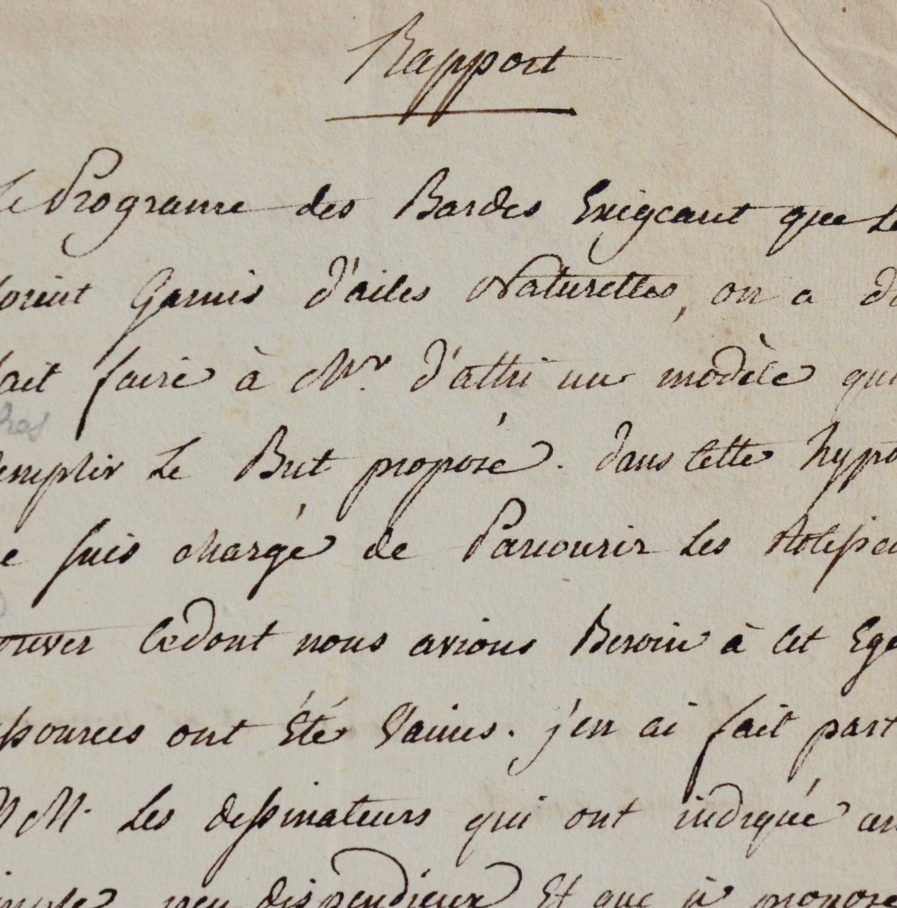 Rapport
Le Programe des Bardes Exigeant que Le
soient Garnis d'ailes Naturelles, on a d
fait faire à Mr. d'althi un modèle qui
remplir Le But proposé. dans Cette hypo
je suis chargé de Parcourir Les
trouver Cedont nous avions Besoin à Cet Ega
essources ont Eté Vaines. j'en ai fait part
MM. Les dessinateurs qui ont indiqué un
simple, peu dispendieux Et que je propose